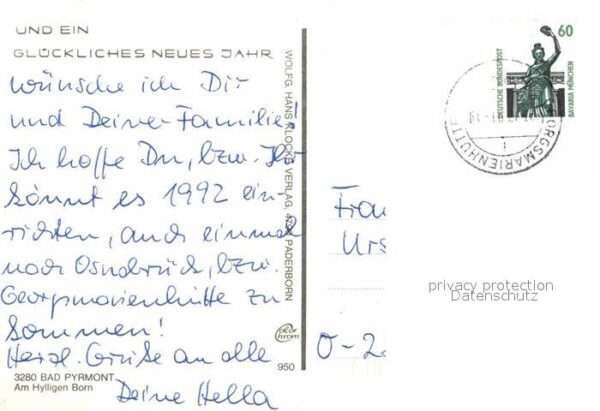 UND EIN
GLÜCKLICHES NEUES JAHR
wünsche ich Dir
und Deiner Familie!
Ich hoffe Du, bzw. Ihr
könnt es 1992 ein-
richten, auch einmal
nach Osnabrück, bzw.
Georgsmarienhütte zu
kommen!
Herzl. Grüße an alle
Deine Hella
3280 BAD PYRMONT
Am Hylligen Born
WOLFG. HANS KLOCKE VERLAG, PADERBORN
color chrom
950
60
DEUTSCHE BUNDESPOST
BAVARIA MÜNCHEN
ORGSMARIENHÜTTE
1
Frau
Urs
O-2
privacy protection
Datenschutz